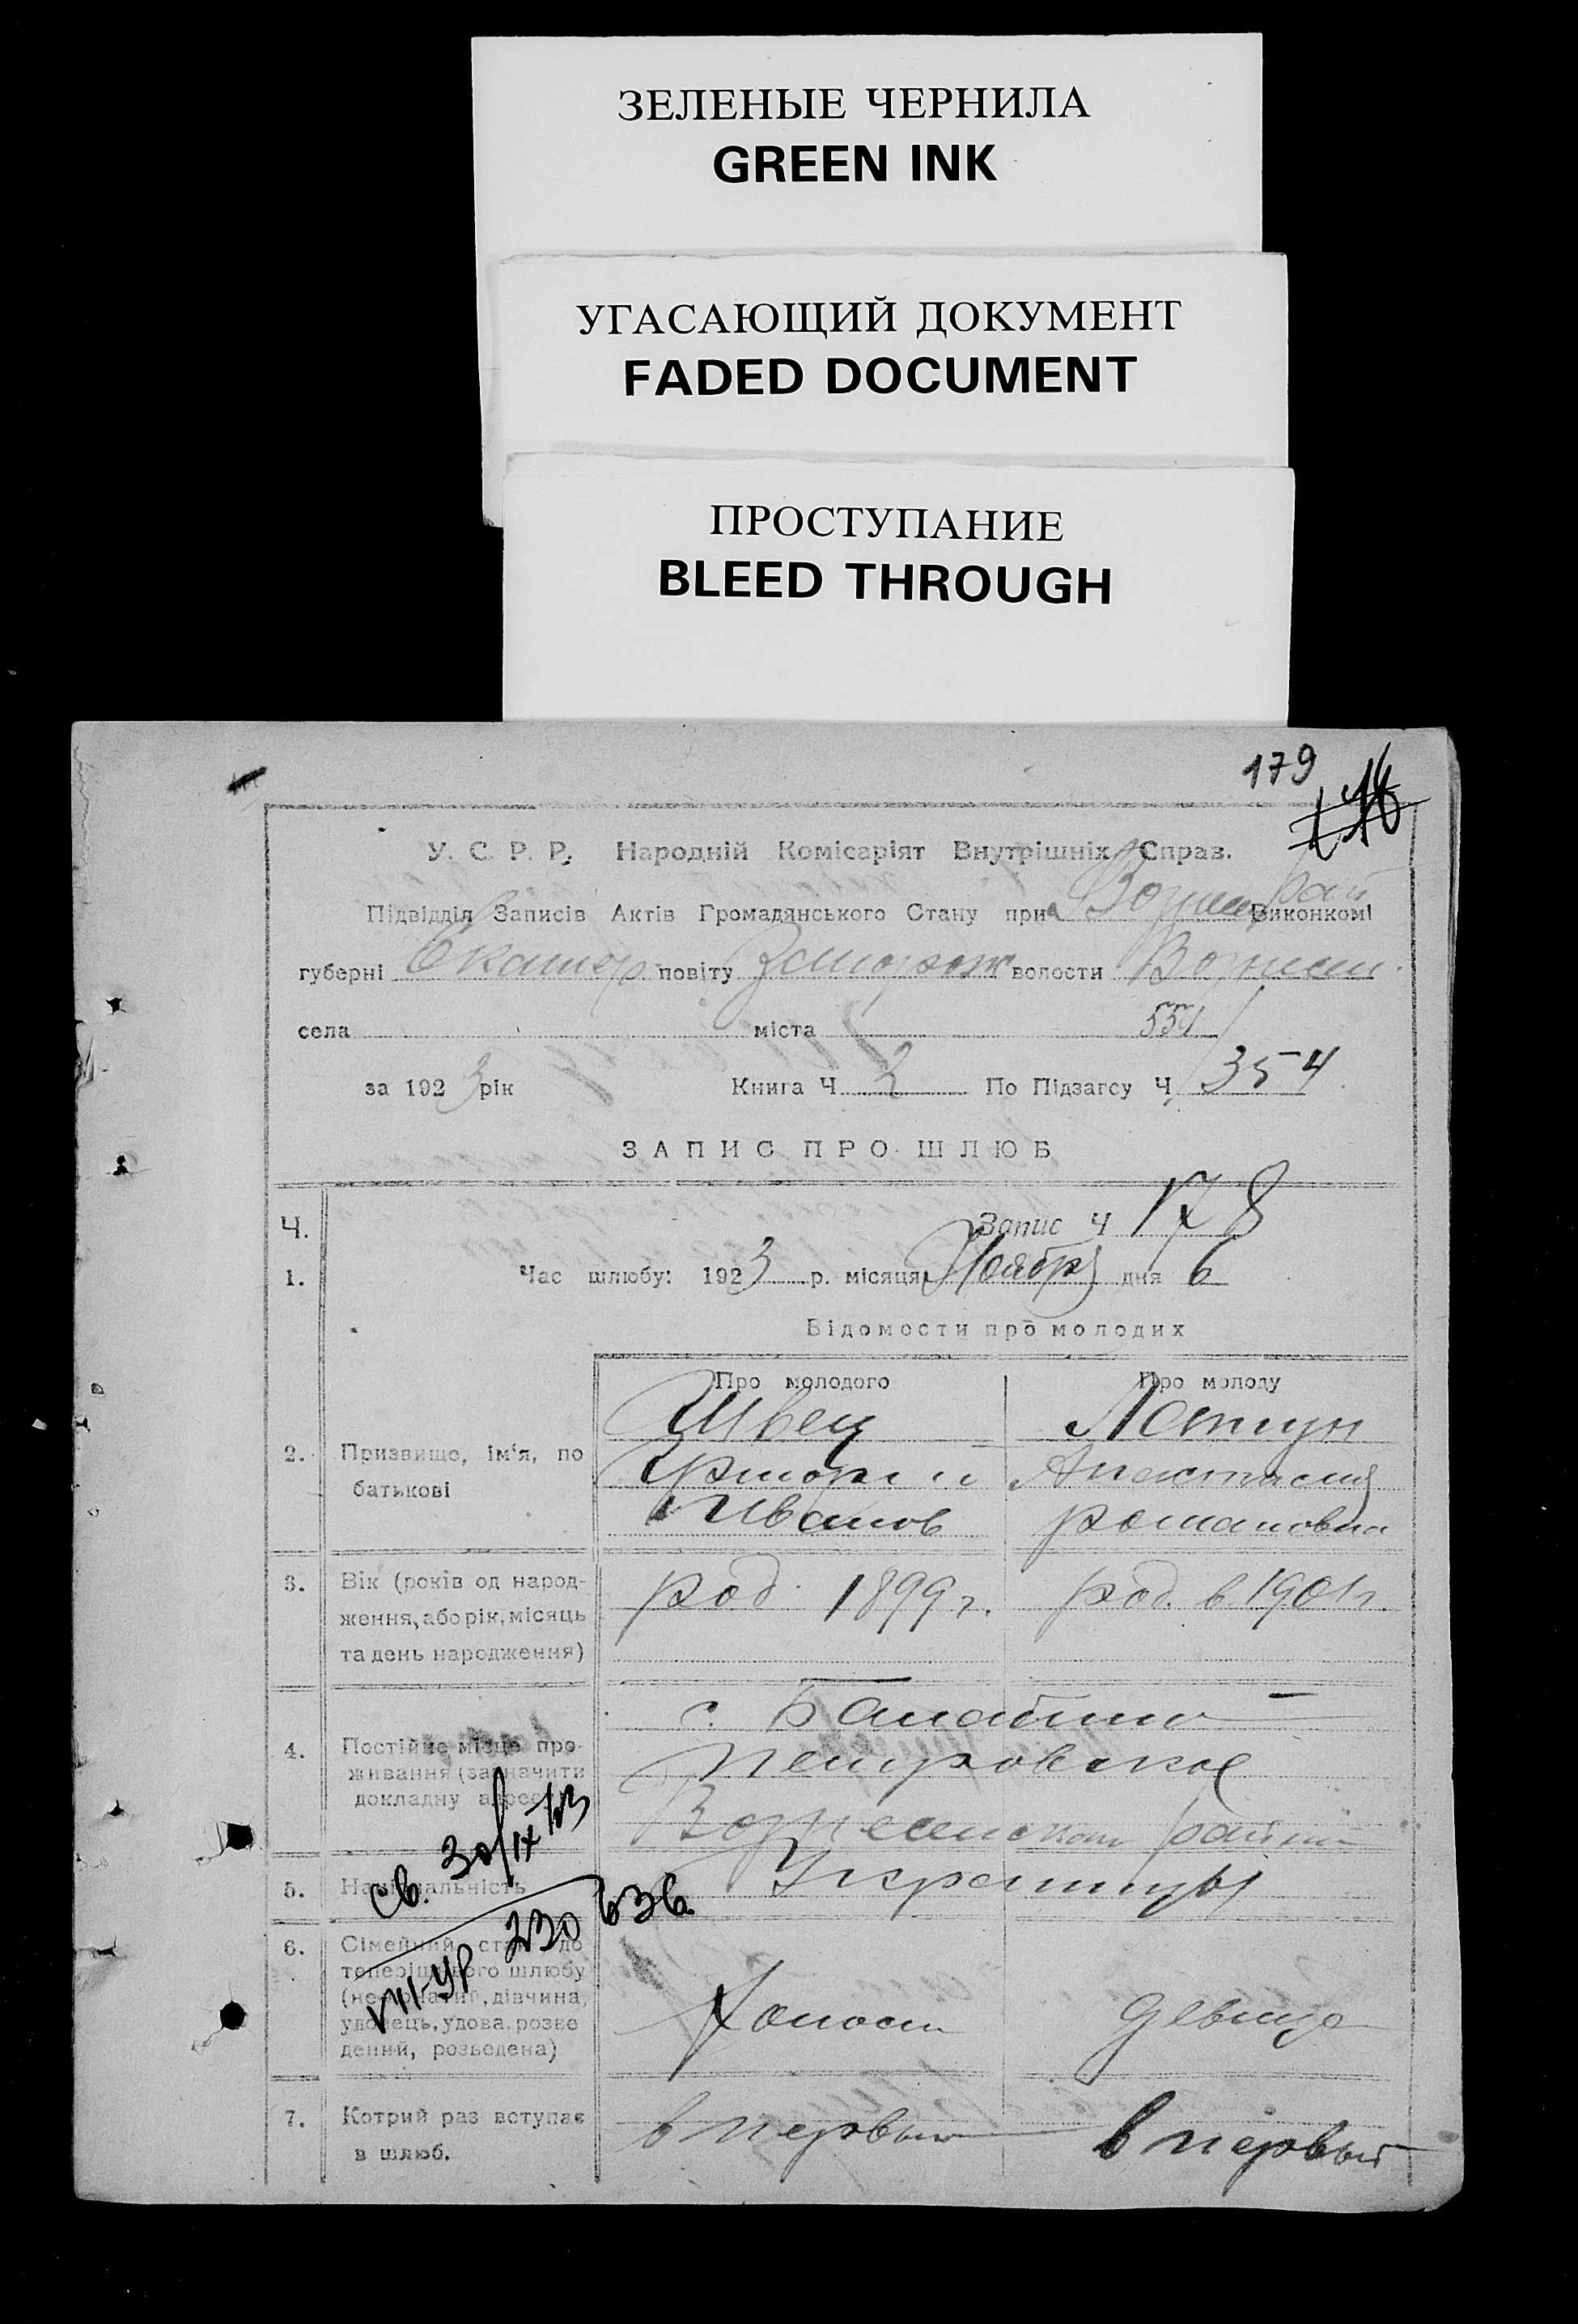 ЗЕЛЕНЫЕ ЧЕРНИЛА
GREEN INK
УГАСАЮЩИЙ ДОКУМЕНТ
FADED DOCUMENT
ПРОСТУПАНИЕ
BLEED THROUGH
179
У. С. Р. Р. Народній Комісаріят Внутрішніх Справ.
Підвідділ Записів Актів Громадянського Стану при Виконкомі
губерні Екатер повіту Запорож волости Вознесен.
села міста 551
за 1923 рік Книга Ч. 2 По Підзагсу Ч. 354
ЗАПИС ПРО ШЛЮБ
Ч. Запис Ч 178
1. Час шлюбу: 1923 р. місяця Ноября дня 6
Відомости про молодих
Про молодого Про молоду
Швец
2. Призвище, ім'я, по Григори Анастасия
батькові Иванов Романовна
3. Вік (років од народ- род. 1899 г. род. в 1901 г.
ження, або рік, місяць
та день народження)
с. Балабино
4. Постійне місце про- Петровское
живання (зазначити
докладну адресу) Вознесенском
5. Національність Украинцы
св. 30/IX
230
6. Сімейний стан до
теперішнього шлюбу
(нежонатий, дівчина, Холост девица
удовець, удова, розве
дений, розведена)
7. Котрий раз вступає в первый в первый
в шлюб.